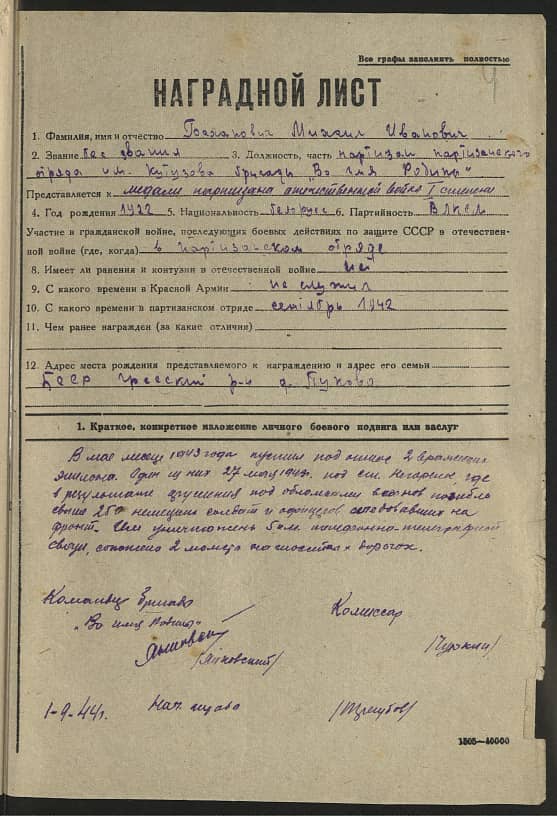 Все графы заполнять полностью
НАГРАДНОЙ ЛИСТ
1. Фамилия, имя и отчество Михаил Иванович
2. Звание без звания 3. Должность, часть партизан партизанского
отряда им. Кутузова бригады "Во имя Родины"
Представляется к медали партизана отечественной войны I степени
4. Год рождения 1922 5. Национальность белорус 6. Партийность ВЛКСМ
Участие в гражданской войне, последующих боевых действиях по защите СССР в отечествен-
ной войне (где, когда) в партизанском отряде
8. Имеет ли ранения и контузии в отечественной войне нет
9. С какого времени в Красной Армии не служил
10. С какого времени в партизанском отряде сентябрь 1942
11. Чем ранее награжден (за какие отличия)
12. Адрес места рождения представляемого к награждению и адрес его семьи
БССР Гресский р-н д. Пуково
1. Краткое, конкретное изложение личного боевого подвига или заслуг
В мае месяце 1943 года пустил под откос 2 вражеских
эшелона. Один из них 27 мая 1943г. под ст. Негорелое, где
в результате крушения под обломками вагонов погибло
свыше 250 немецких солдат и офицеров следовавших на
фронт. Им уничтожено 5 км. телефонно-телеграфной
связи, сожжено 2 моста на шоссейных дорогах.
Командир бригады Комиссар
"Во имя Родины"
1-9-44г. Нач. штаба
1505—40000